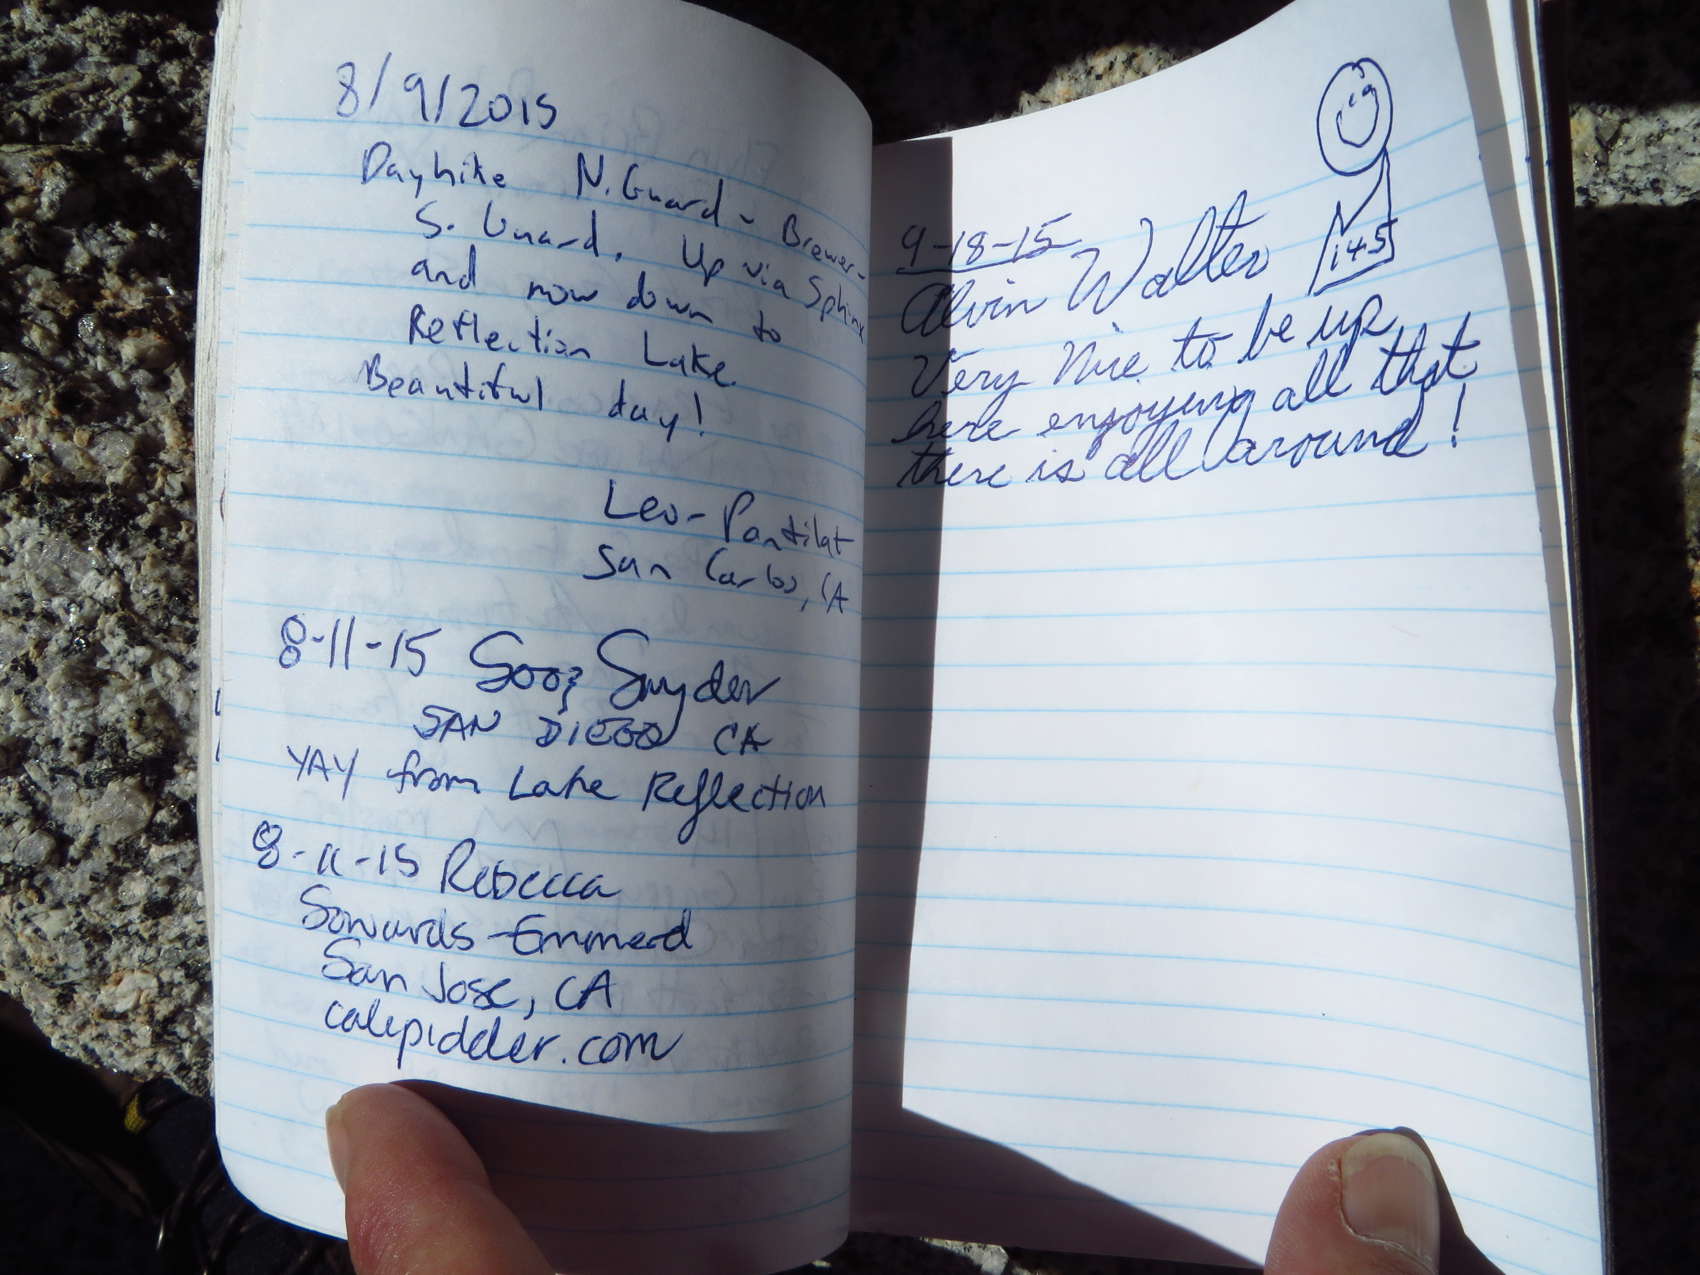 8/9/2015
Dayhike N. Guard - Brewer -
S. Guard. Up via Sphinx
and now down to
Reflection Lake.
Beautiful day!
Leo - Pantilat
San Carlos, CA
8-11-15 Sooz Snyder
SAN DIEGO CA
YAY from Lake Reflection
8-11-15 Rebecca
Sowards-Emmerd
San Jose, CA
calipidder.com
9-18-15
Alvin Walter
145
Very Nice to be up
here enjoying all that
there is all around!